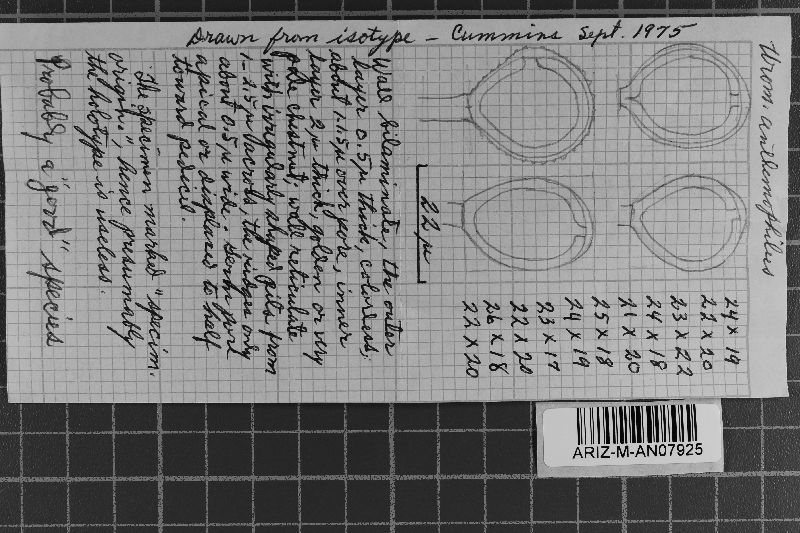 Drawn from isotype – Cummins Sept. 1975
Urom. anthemophilus
24 x 19
22 x 20
23 x 22
24 x 18
21 x 20
25 x 18
24 x 19
23 x 17
22 x 20
26 x 18
22 x 20
22 µ
Wall bilaminate, the outer
layer 0.5µ thick, colorless;
about 1-1.5µ over pore, inner
layer 2µ thick, golden or very
pale chestnut; wall reticulate
with irregularly shaped pits from
1-2.5µ across, the ridges only
about 0.5µ wide. Germ pore
apical or displaced to half
toward pedicel.
The specimen marked "specim.
origin.," hence presumably
the holotype is useless.
Probably a "good" species
ARIZ-M-AN07925